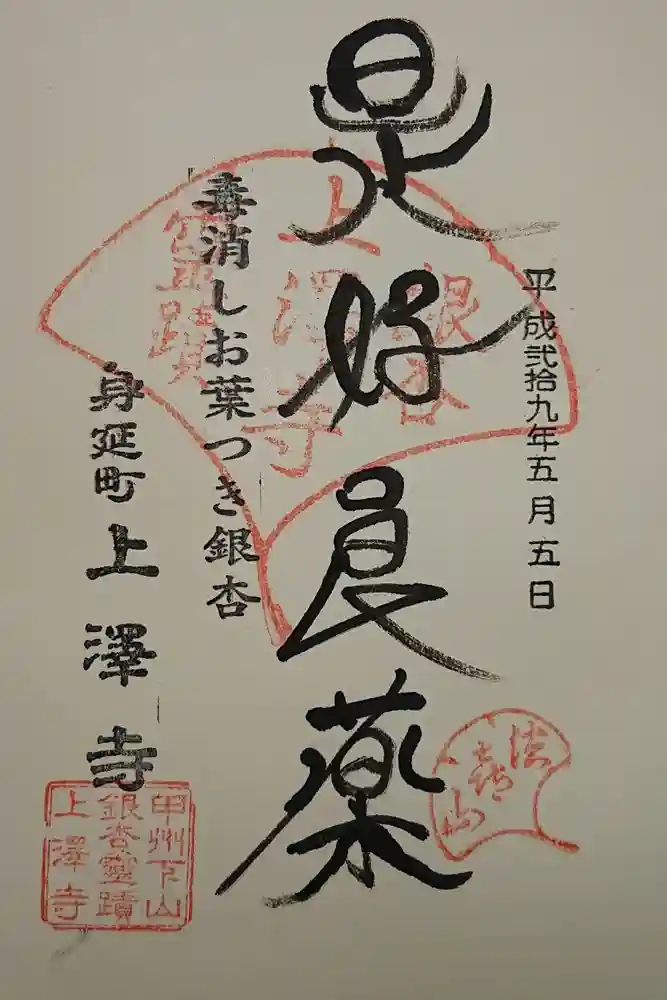 平成弐拾九年五月五日
是好良薬
銀杏
上澤寺
霊蹟
毒消しお葉つき銀杏
身延町 上澤寺
法喜山
甲州下山
銀杏靈蹟
上澤寺